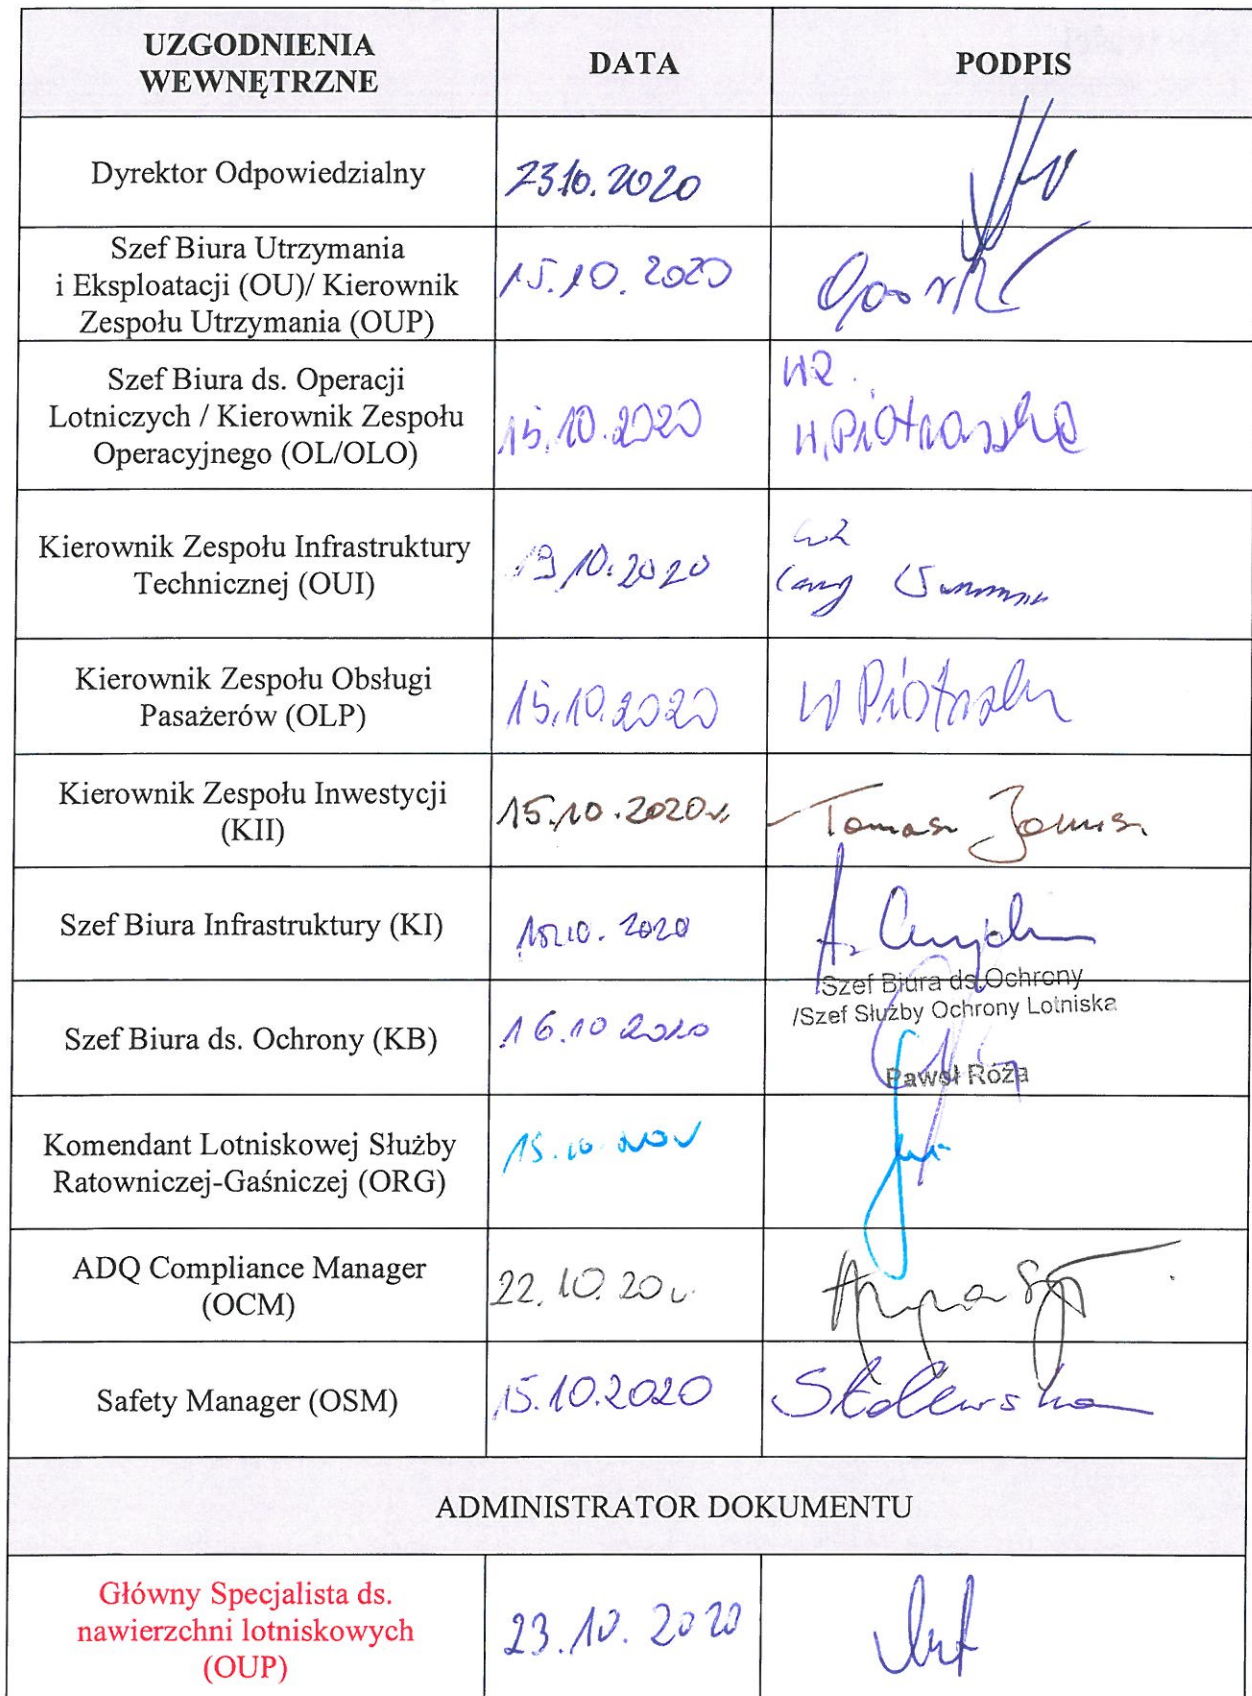 UZGODNIENIA
WEWNĘTRZNE
DATA
PODPIS
Dyrektor Odpowiedzialny
23.10.2020
Szef Biura Utrzymania
i Eksploatacji (OU)/ Kierownik
Zespołu Utrzymania (OUP)
15.10.2020
Szef Biura ds. Operacji
Lotniczych / Kierownik Zespołu
Operacyjnego (OL/OLO)
15.10.2020
Kierownik Zespołu Infrastruktury
Technicznej (OUI)
19.10.2020
Kierownik Zespołu Obsługi
Pasażerów (OLP)
15.10.2020
Kierownik Zespołu Inwestycji
(KII)
15.10.2020r.
Tomasz
Szef Biura Infrastruktury (KI)
2020
Szef Biura ds. Ochrony (KB)
16.10 2020
Szef Biura ds. Ochrony
/Szef Służby Ochrony Lotniska
Paweł Róża
Komendant Lotniskowej Służby
Ratowniczej-Gaśniczej (ORG)
ADQ Compliance Manager
(OCM)
22.10.20r.
Safety Manager (OSM)
15.10.2020
ADMINISTRATOR DOKUMENTU
Główny Specjalista ds.
nawierzchni lotniskowych
(OUP)
23.10.2020